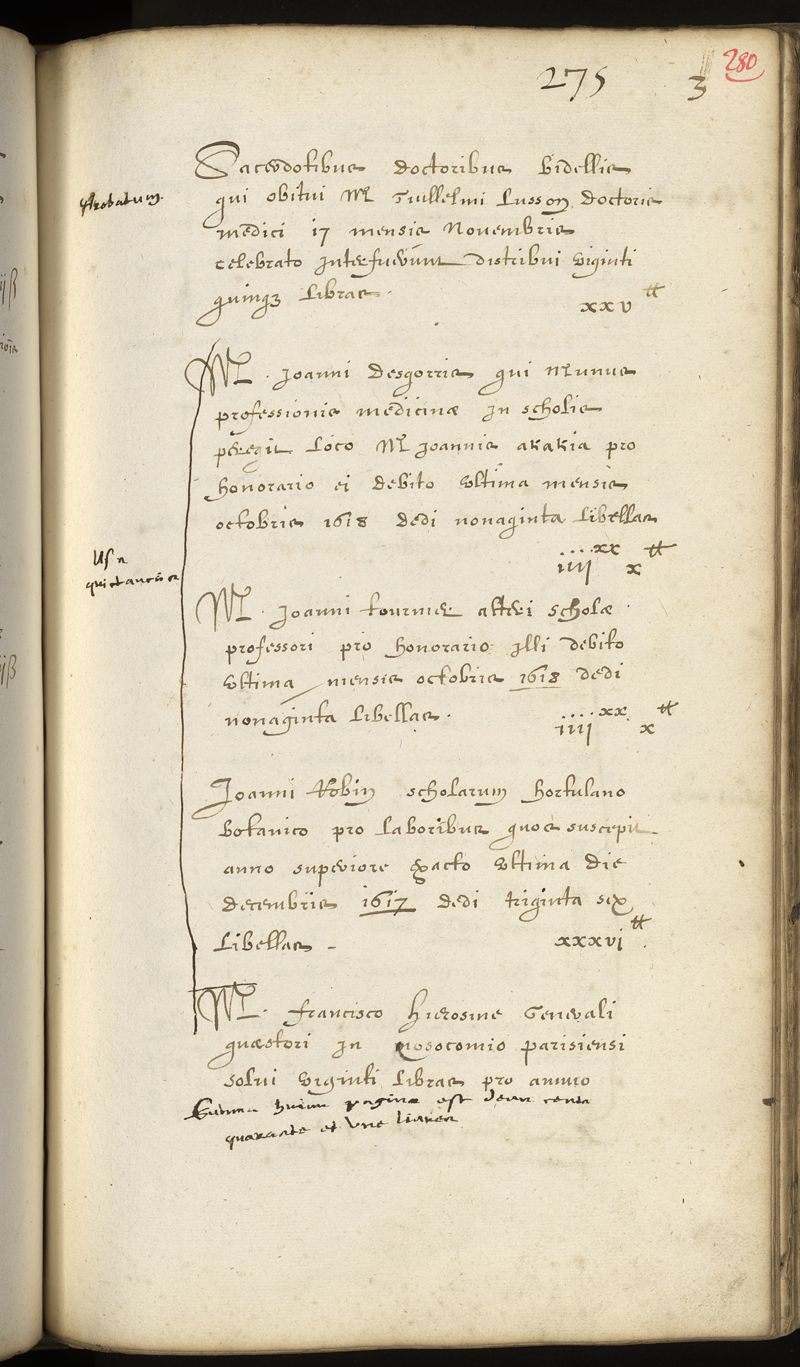 275
3
280
Sacerdotibus doctoribus bidellis
Probatum.
qui obitui Mri Guillelmi Lusson doctoris
medici 17 mensis Novembris
celebrato interfuerunt distribui viginti
quinq3 libras.
xxv tt
Mro. Joanni Desgorris qui munus
professionis medicinæ in scholis
peregit loco Mri Joannis akakia pro
honorario ei debito ultima mensis
octobris 1618 dedi nonaginta libellas
iiii xx x tt
quictancia
Mro. Joanni tournier alteri scholæ
professori pro honorario illi debito
ultima mensis octobris 1618 dedi
nonaginta libellas.
iiii xx x tt
Joanni Robin scholarum hortulano
botanico pro laboribus quos suscepit
anno superiore exacto ultima die
decembris 1617 dedi triginta sex
libellas
xxxvi tt
Mro. francisco hierosme Generali
quæstori in nosocomio parisiensi
solui viginti libras pro annuo
Summa huius paginæ est deux cents
quarante et une livres